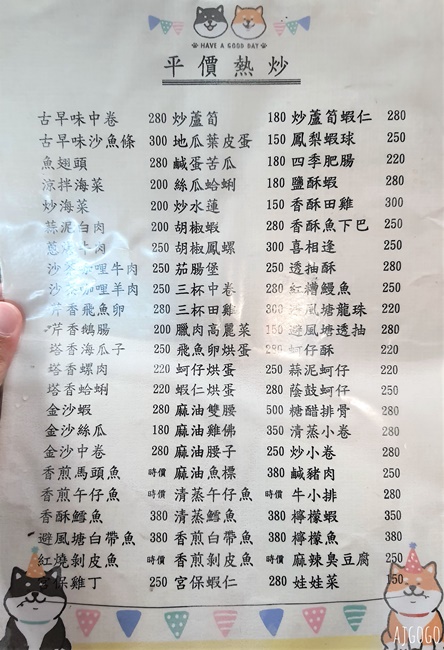 HAVE A GOOD DAY
平價熱炒
古早味中卷 280 炒蘆筍 180 炒蘆筍蝦仁 280
古早味沙魚條 300 地瓜葉皮蛋 150 鳳梨蝦球 250
魚翅頭 280 鹹蛋苦瓜 180 四季肥腸 220
涼拌海菜 200 絲瓜蛤蜊 180 鹽酥蝦 280
炒海菜 200 炒水蓮 150 香酥田雞 300
蒜泥白肉 200 胡椒蝦 280 香酥魚下巴 250
蔥爆牛肉 250 胡椒鳳螺 300 喜相逢 250
沙茶咖哩牛肉 250 茄腸堡 250 透抽酥 280
沙茶咖哩羊肉 250 三杯中卷 280 紅糟鰻魚 250
芹香飛魚卵 280 三杯田雞 300 避風塘龍珠 220
芹香鵝腸 200 臘肉高麗菜 150 避風塘透抽 280
塔香海瓜子 250 飛魚卵烘蛋 280 蚵仔酥 220
塔香螺肉 220 蚵仔烘蛋 250 蒜泥蚵仔 250
塔香蛤蜊 220 蝦仁烘蛋 280 蔭鼓蚵仔 250
金沙蝦 280 麻油雙腰 500 糖醋排骨 280
金沙絲瓜 180 麻油雞佛 350 清蒸小卷 280
金沙中卷 280 麻油腰子 250 炒小卷 280
香煎馬頭魚 時價 麻油魚標 380 鹹豬肉 250
香煎午仔魚 時價 清蒸午仔魚 時價 牛小排 280
香酥鱈魚 380 清蒸鱈魚 380 檸檬蝦 350
避風塘白帶魚 380 香煎白帶魚 380 檸檬魚 380
紅燒剝皮魚 時價 香煎剝皮魚 時價 麻辣臭豆腐 250
宮保雞丁 250 宮保蝦仁 280 娃娃菜 150
AJGOGO